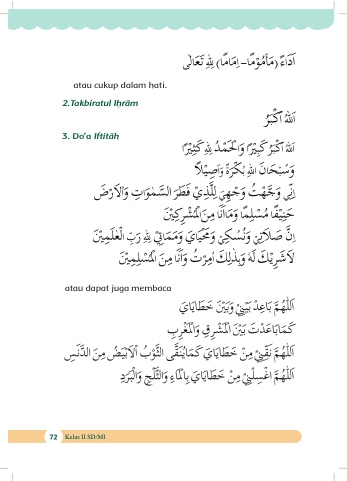 اَدَاءً (مَأْمُوْمًا – اِمَامًا) لِلّٰهِ تَعَالٰى
atau cukup dalam hati.
2.Takbiratul Iḥrām
اَللهُ اَكْبَرُ
3. Do‘a Iftitāḥ
اَللهُ اَكْبَرُ كَبِيْرًا وَالْحَمْدُ لِلّٰهِ كَثِيْرًا
وَسُبْحَانَ اللهِ بُكْرَةً وَاَصِيْلًا
اِنِّي وَجَّهْتُ وَجْهِيَ لِلَّذِيْ فَطَرَ السَّمٰوٰتِ وَالْاَرْضَ
حَنِيْفًا مُسْلِمًا وَمَا اَنَا مِنَ الْمُشْرِكِيْنَ
اِنَّ صَلَاتِيْ وَنُسُكِيْ وَمَحْيَايَ وَمَمَاتِيْ لِلّٰهِ رَبِّ الْعٰلَمِيْنَ
لَا شَرِيْكَ لَهٗ وَبِذٰلِكَ اُمِرْتُ وَاَنَا مِنَ الْمُسْلِمِيْنَ
atau dapat juga membaca
اَللّٰهُمَّ بَاعِدْ بَيْنِيْ وَبَيْنَ خَطَايَايَ
كَمَا بَاعَدْتَ بَيْنَ الْمَشْرِقِ وَالْمَغْرِبِ
اَللّٰهُمَّ نَقِّنِيْ مِنْ خَطَايَايَ كَمَا يُنَقَّى الثَّوْبُ الْاَبْيَضُ مِنَ الدَّنَسِ
اَللّٰهُمَّ اغْسِلْنِيْ مِنْ خَطَايَايَ بِالْمَاءِ وَالثَّلْجِ وَالْبَرَدِ
72 Kelas II SD/MI